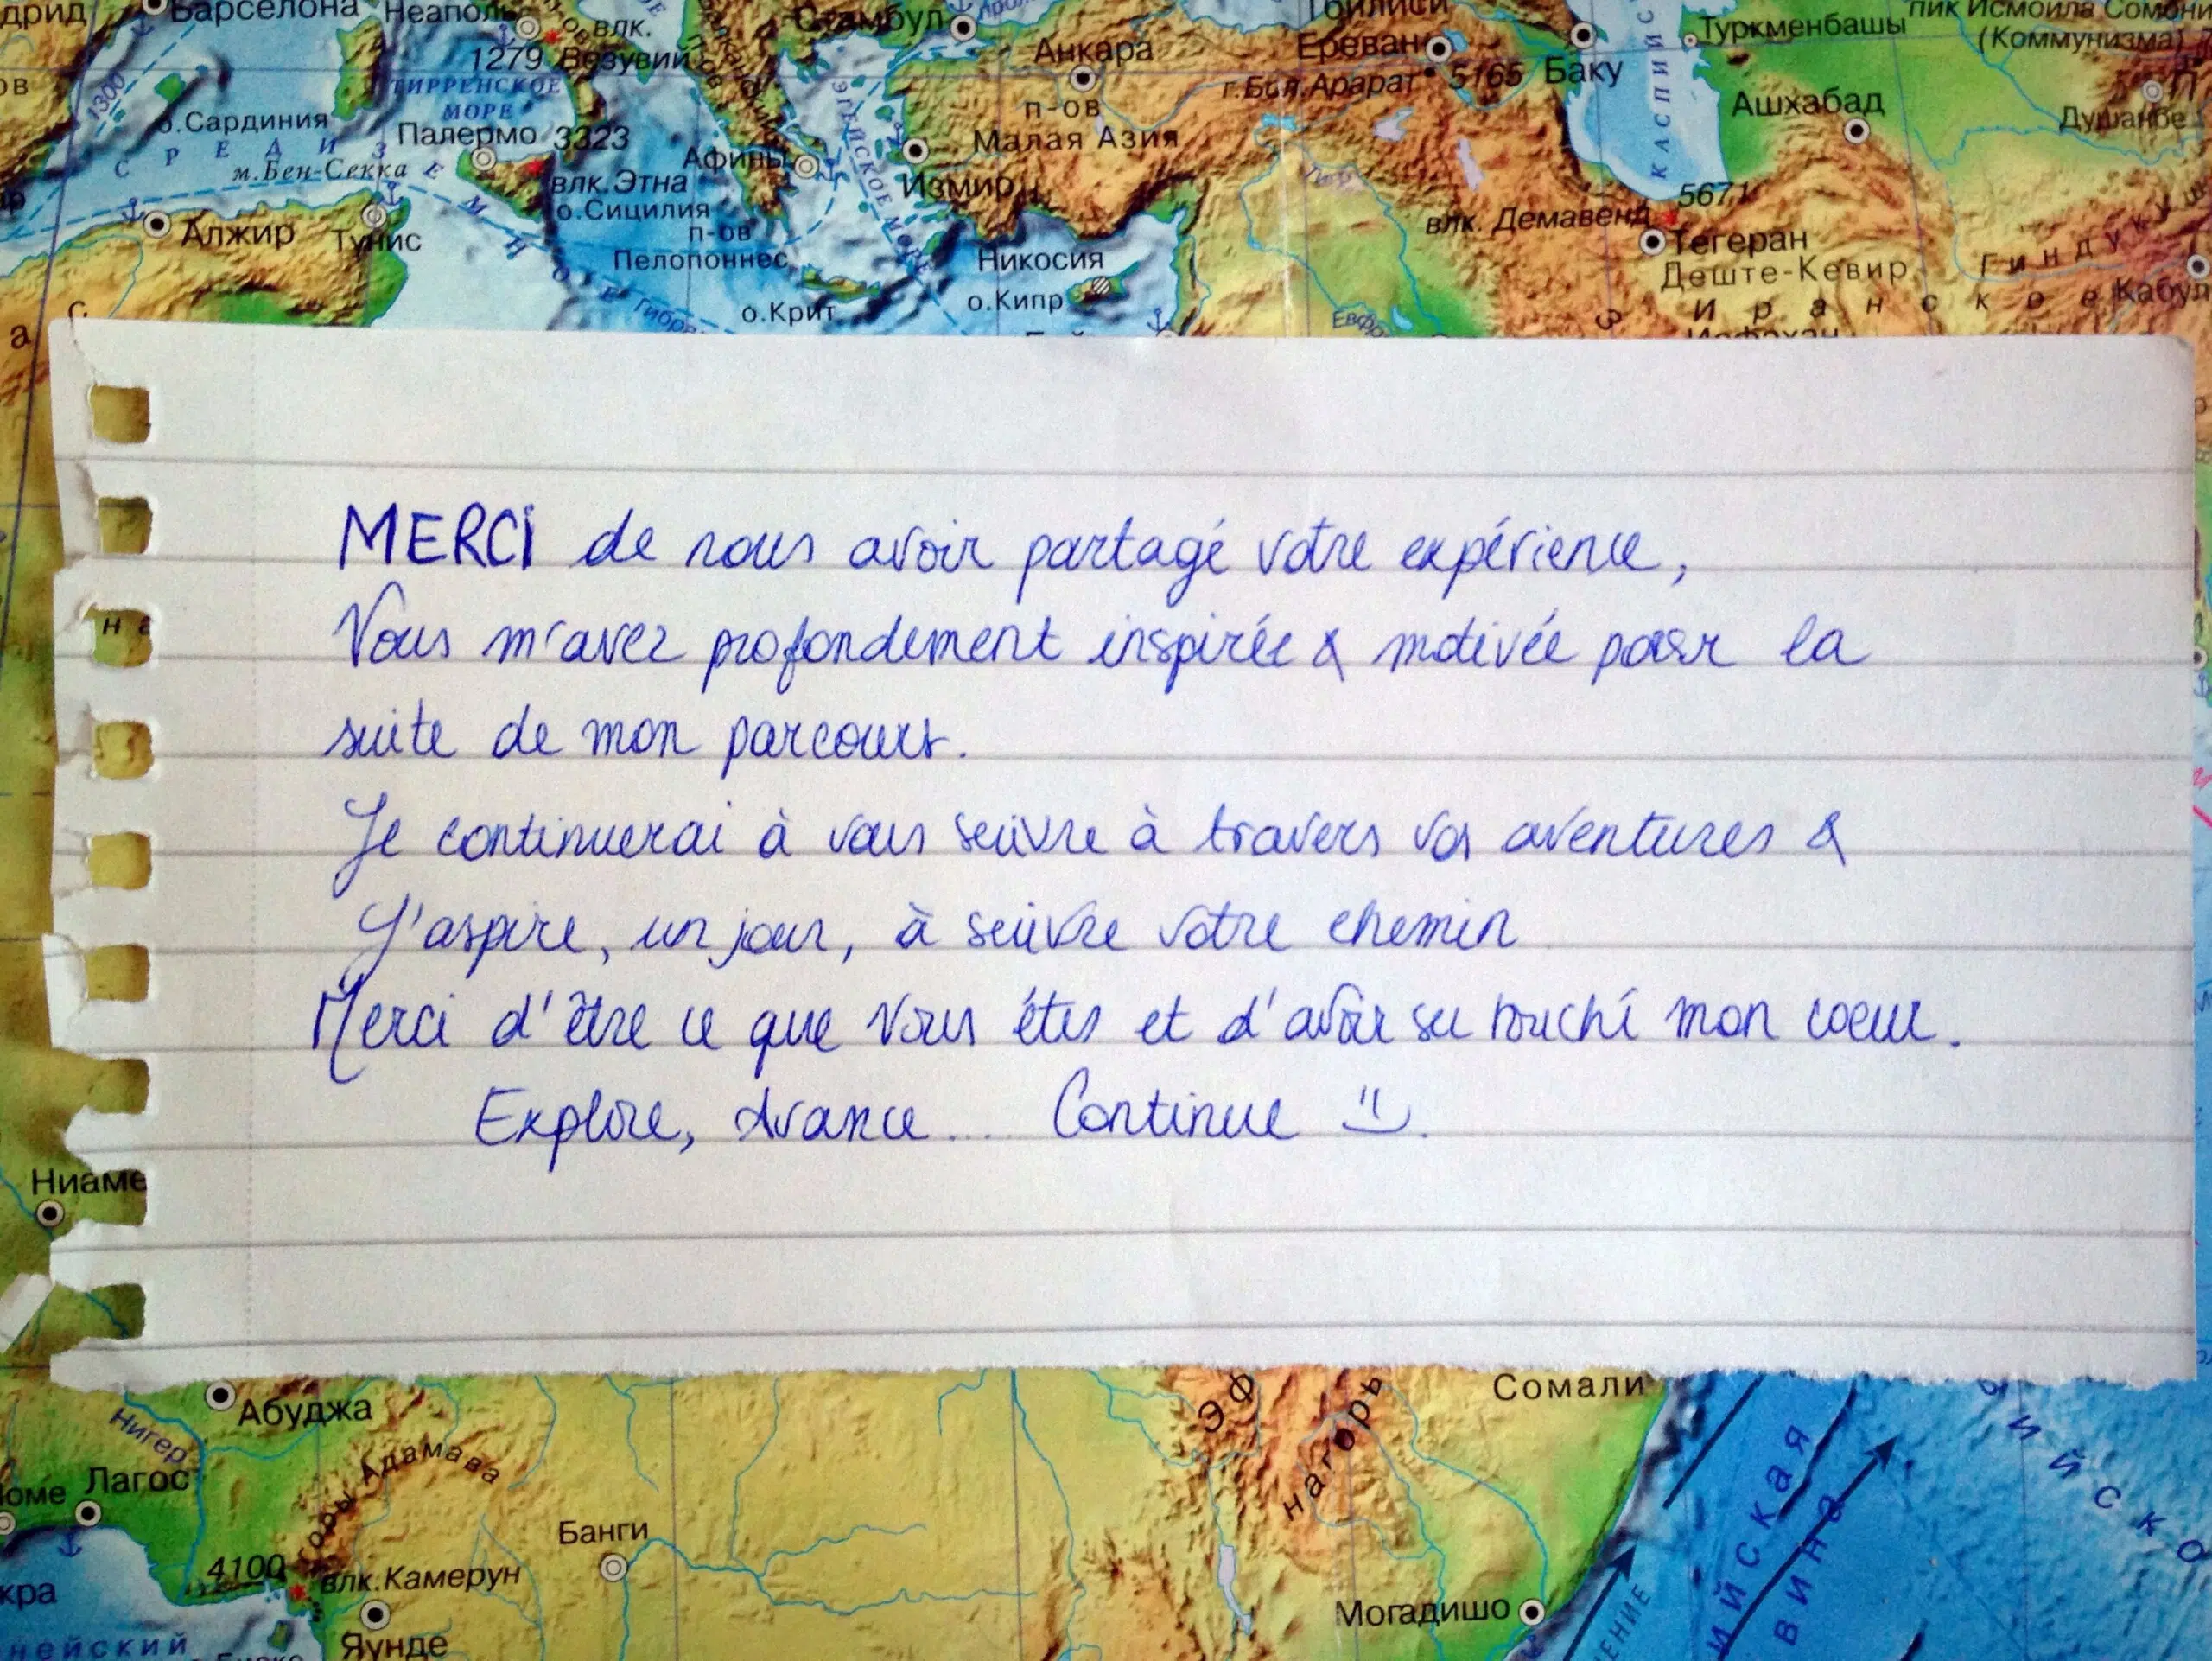 дрид
Барселона
Неаполь
влк.
1279 Везувий
Стамбул
Анкара
Тбилиси
Ереван
г.Бол.Арарат 5165
Баку
Туркменбашы
пик Исмоила Сомони
(Коммунизма)
1300
о.Сардиния
ТИРРЕНСКОЕ
МОРЕ
Палермо 3323
п-ов
Малая Азия
КАСПИЙС
Ашхабад
Душанбе
СРЕДИЗЕМНОЕ
м.Бен-Секка
влк.Этна
о.Сицилия
Афины
ЭГЕЙСКОЕ МОРЕ
Измир
5671
влк. Демавенд
Алжир
Тунис
п-ов
Пелопоннес
Никосия
Тегеран
Деште-Кевир
Гиндуку
о.Крит
о.Кипр
Иранское
Кабул
Гибра
Евфр
Исфахан
MERCI de nous avoir partagé votre expérience,
Vous m'avez profondement inspirée & motivée pour la
suite de mon parcours.
Je continuerai à vous suivre à travers vos aventures &
J'aspire, un jour, à suivre votre chemin
Merci d'être ce que vous êtes et d'avoir su touché mon coeur.
Explore, Avance... Continue
Ниаме
Абуджа
Нигер
Эф
нагорь
Сомали
оме Лагос
горы Адамава
Банги
4100
влк.Камерун
кра
Яунде
нейский
Могадишо
ЕНИЕ
ийская
вина
ийско